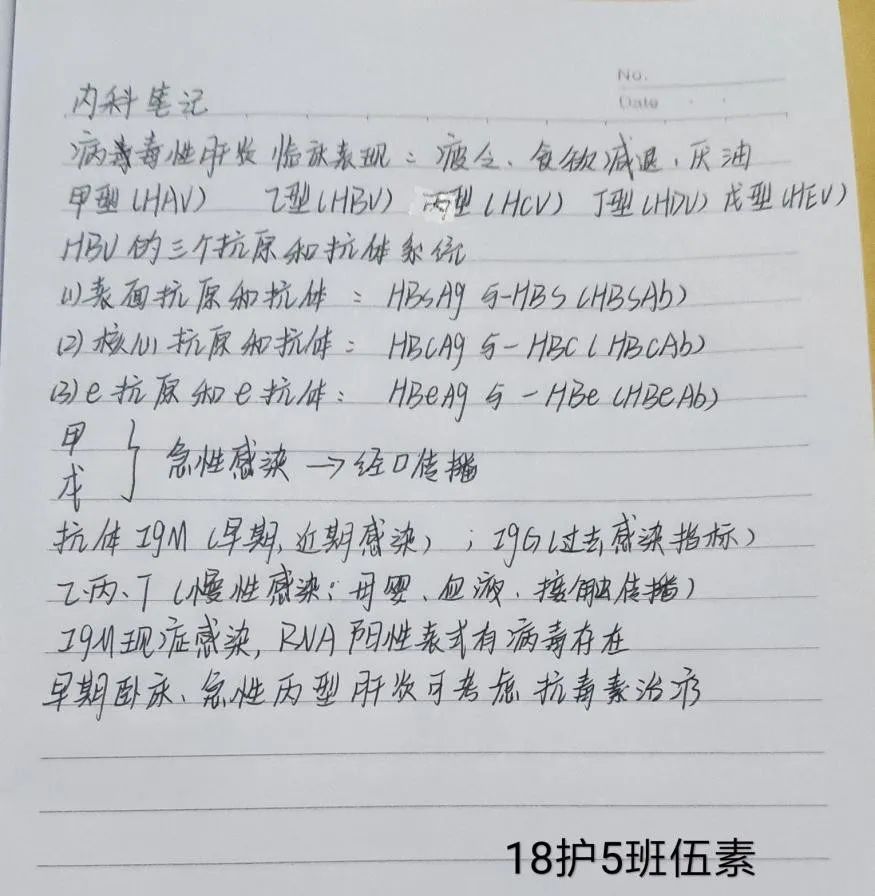 No.
Date
内科笔记
病毒性肝炎临床表现：疲乏、食欲减退、厌油
甲型(HAV) 乙型(HBV) 丙型(HCV) 丁型(HDV) 戊型(HEV)
HBV的三个抗原和抗体系统
(1)表面抗原和抗体：HBsAg 与-HBS(HBSAb)
(2)核心抗原和抗体：HBCAg 与-HBC(HBCAb)
(3)e抗原和e抗体：HBeAg 与-HBe(HBeAb)
甲
戊
} 急性感染→经口传播
抗体IgM(早期,近期感染)；IgG(过去感染指标)
乙.丙、丁(慢性感染：母婴、血液、接触传播)
IgM现症感染,RNA阳性表式有病毒存在
早期卧床、急性丙型肝炎可考虑抗毒素治疗
18护5班伍素